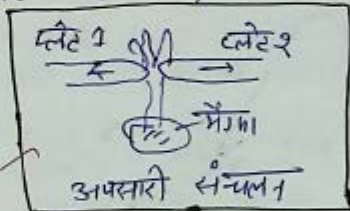 प्लेट 1 प्लेट २
मैग्मा
अपसारी संचलन